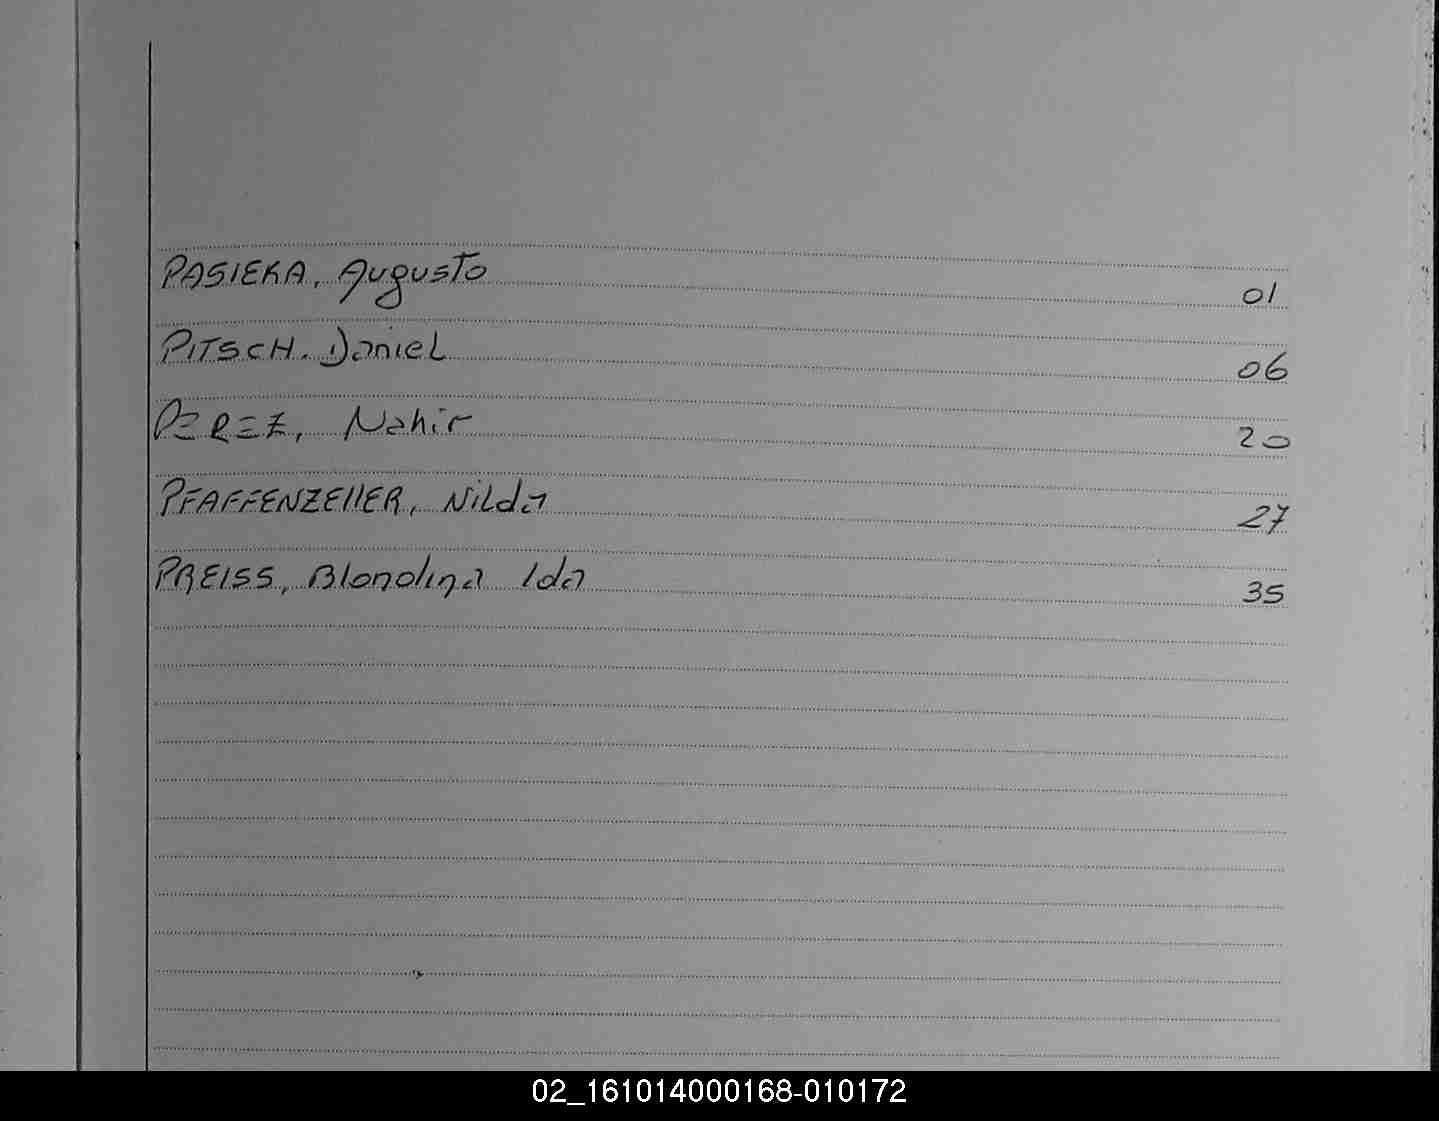 PASIEKA, Augusto 01
PITSCH. Daniel 06
PEREZ, Nahir 20
PFAFFENZEllER, Nilda 27
PREISS, Blondina Ida 35
02_161014000168-010172